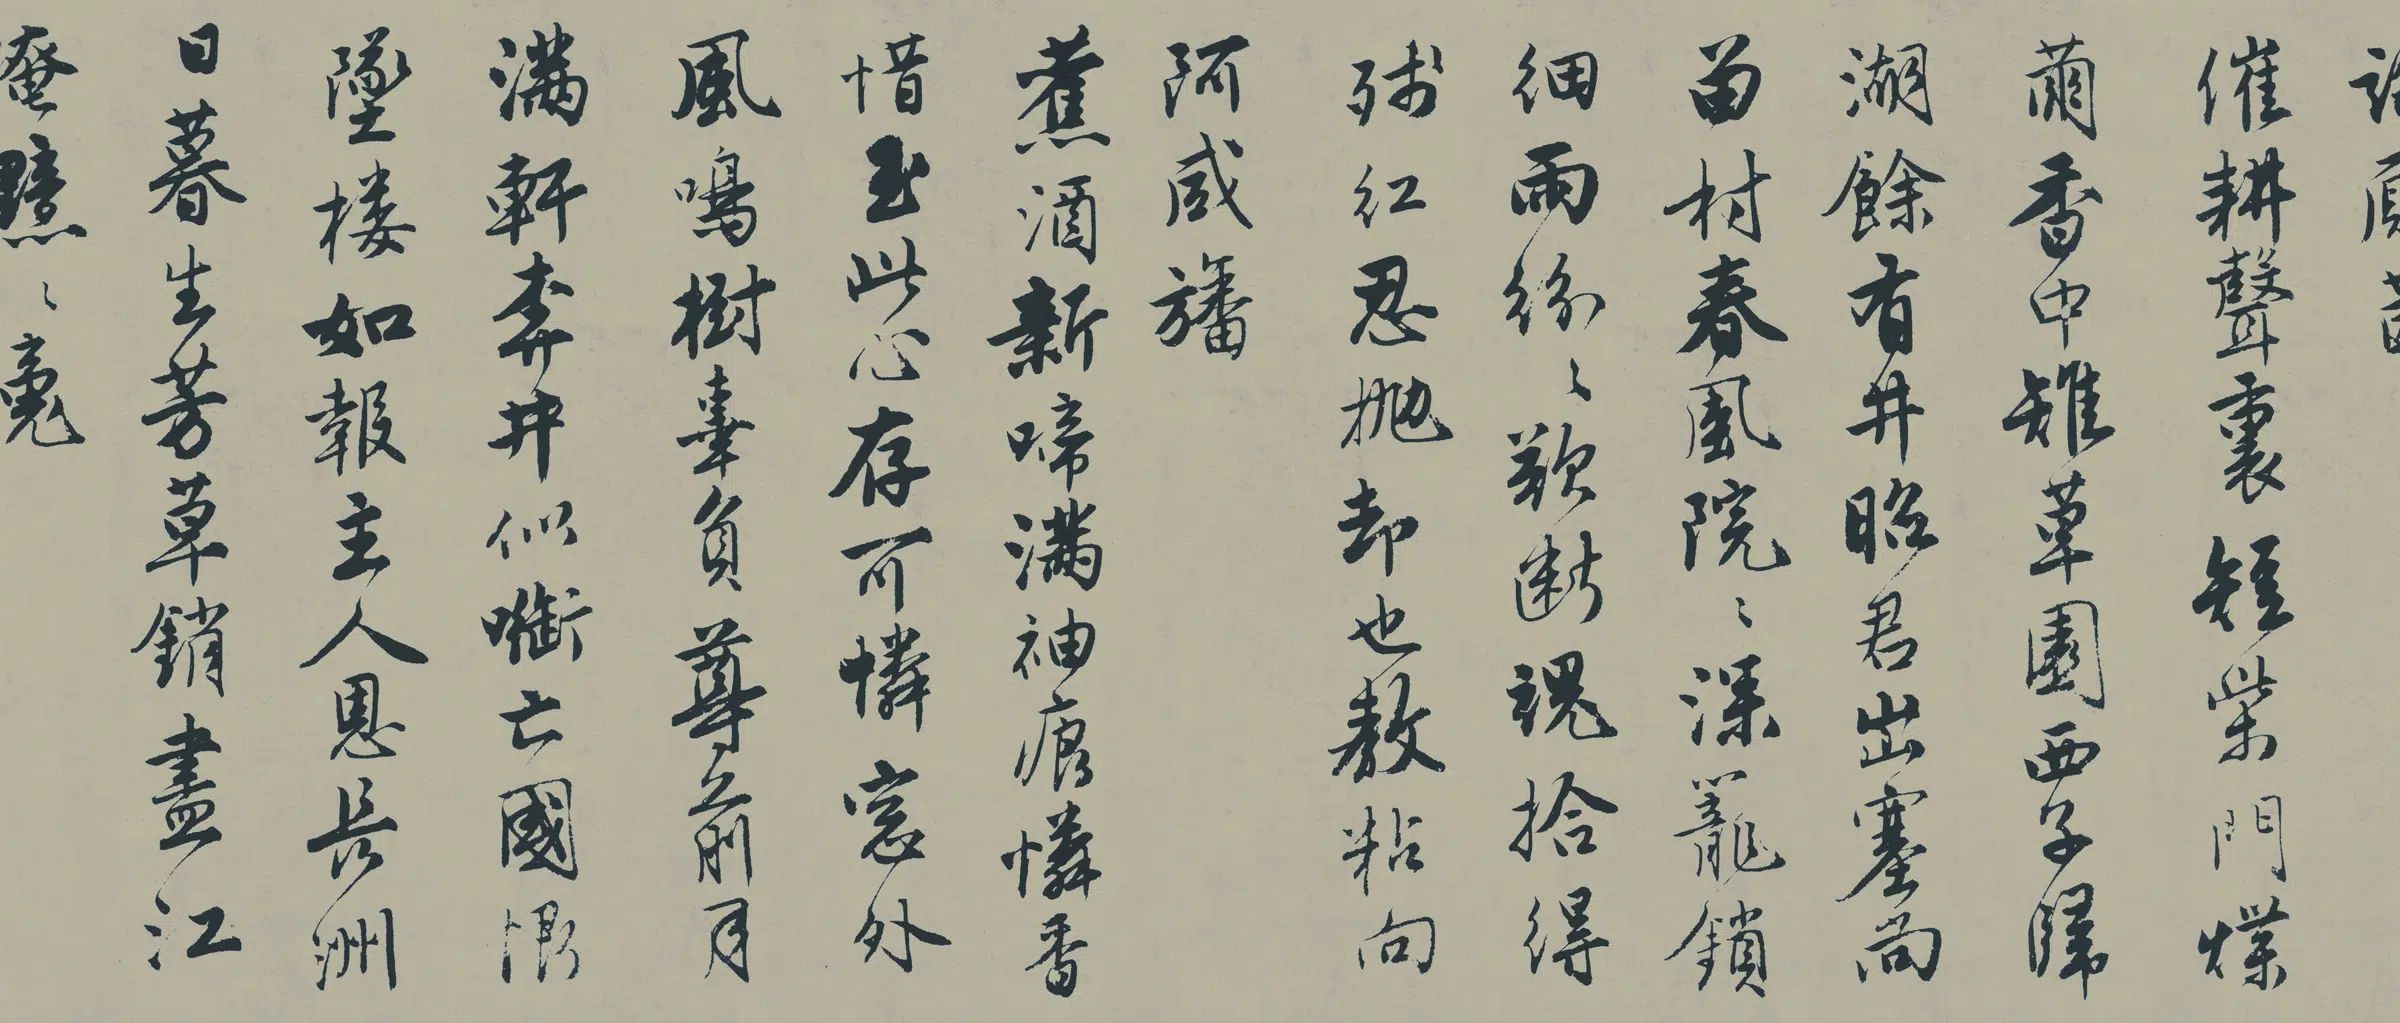 催耕聲裏短柴門煠
繭香中雉草園西子歸
湖餘有井昭君出塞尚
留村春風院々深籠鎖
細雨紛々欲斷魂拾得
殘紅忍抛却也教粘向
阿咸旛
舊酒新啼滿袖痕憐香
惜玉此心存可憐窓外
風鳴樹辜負尊前月
滿軒奔井似啣亡國恨
墜樓如報主人恩長洲
日暮生芳草銷盡江
淹黯々魂